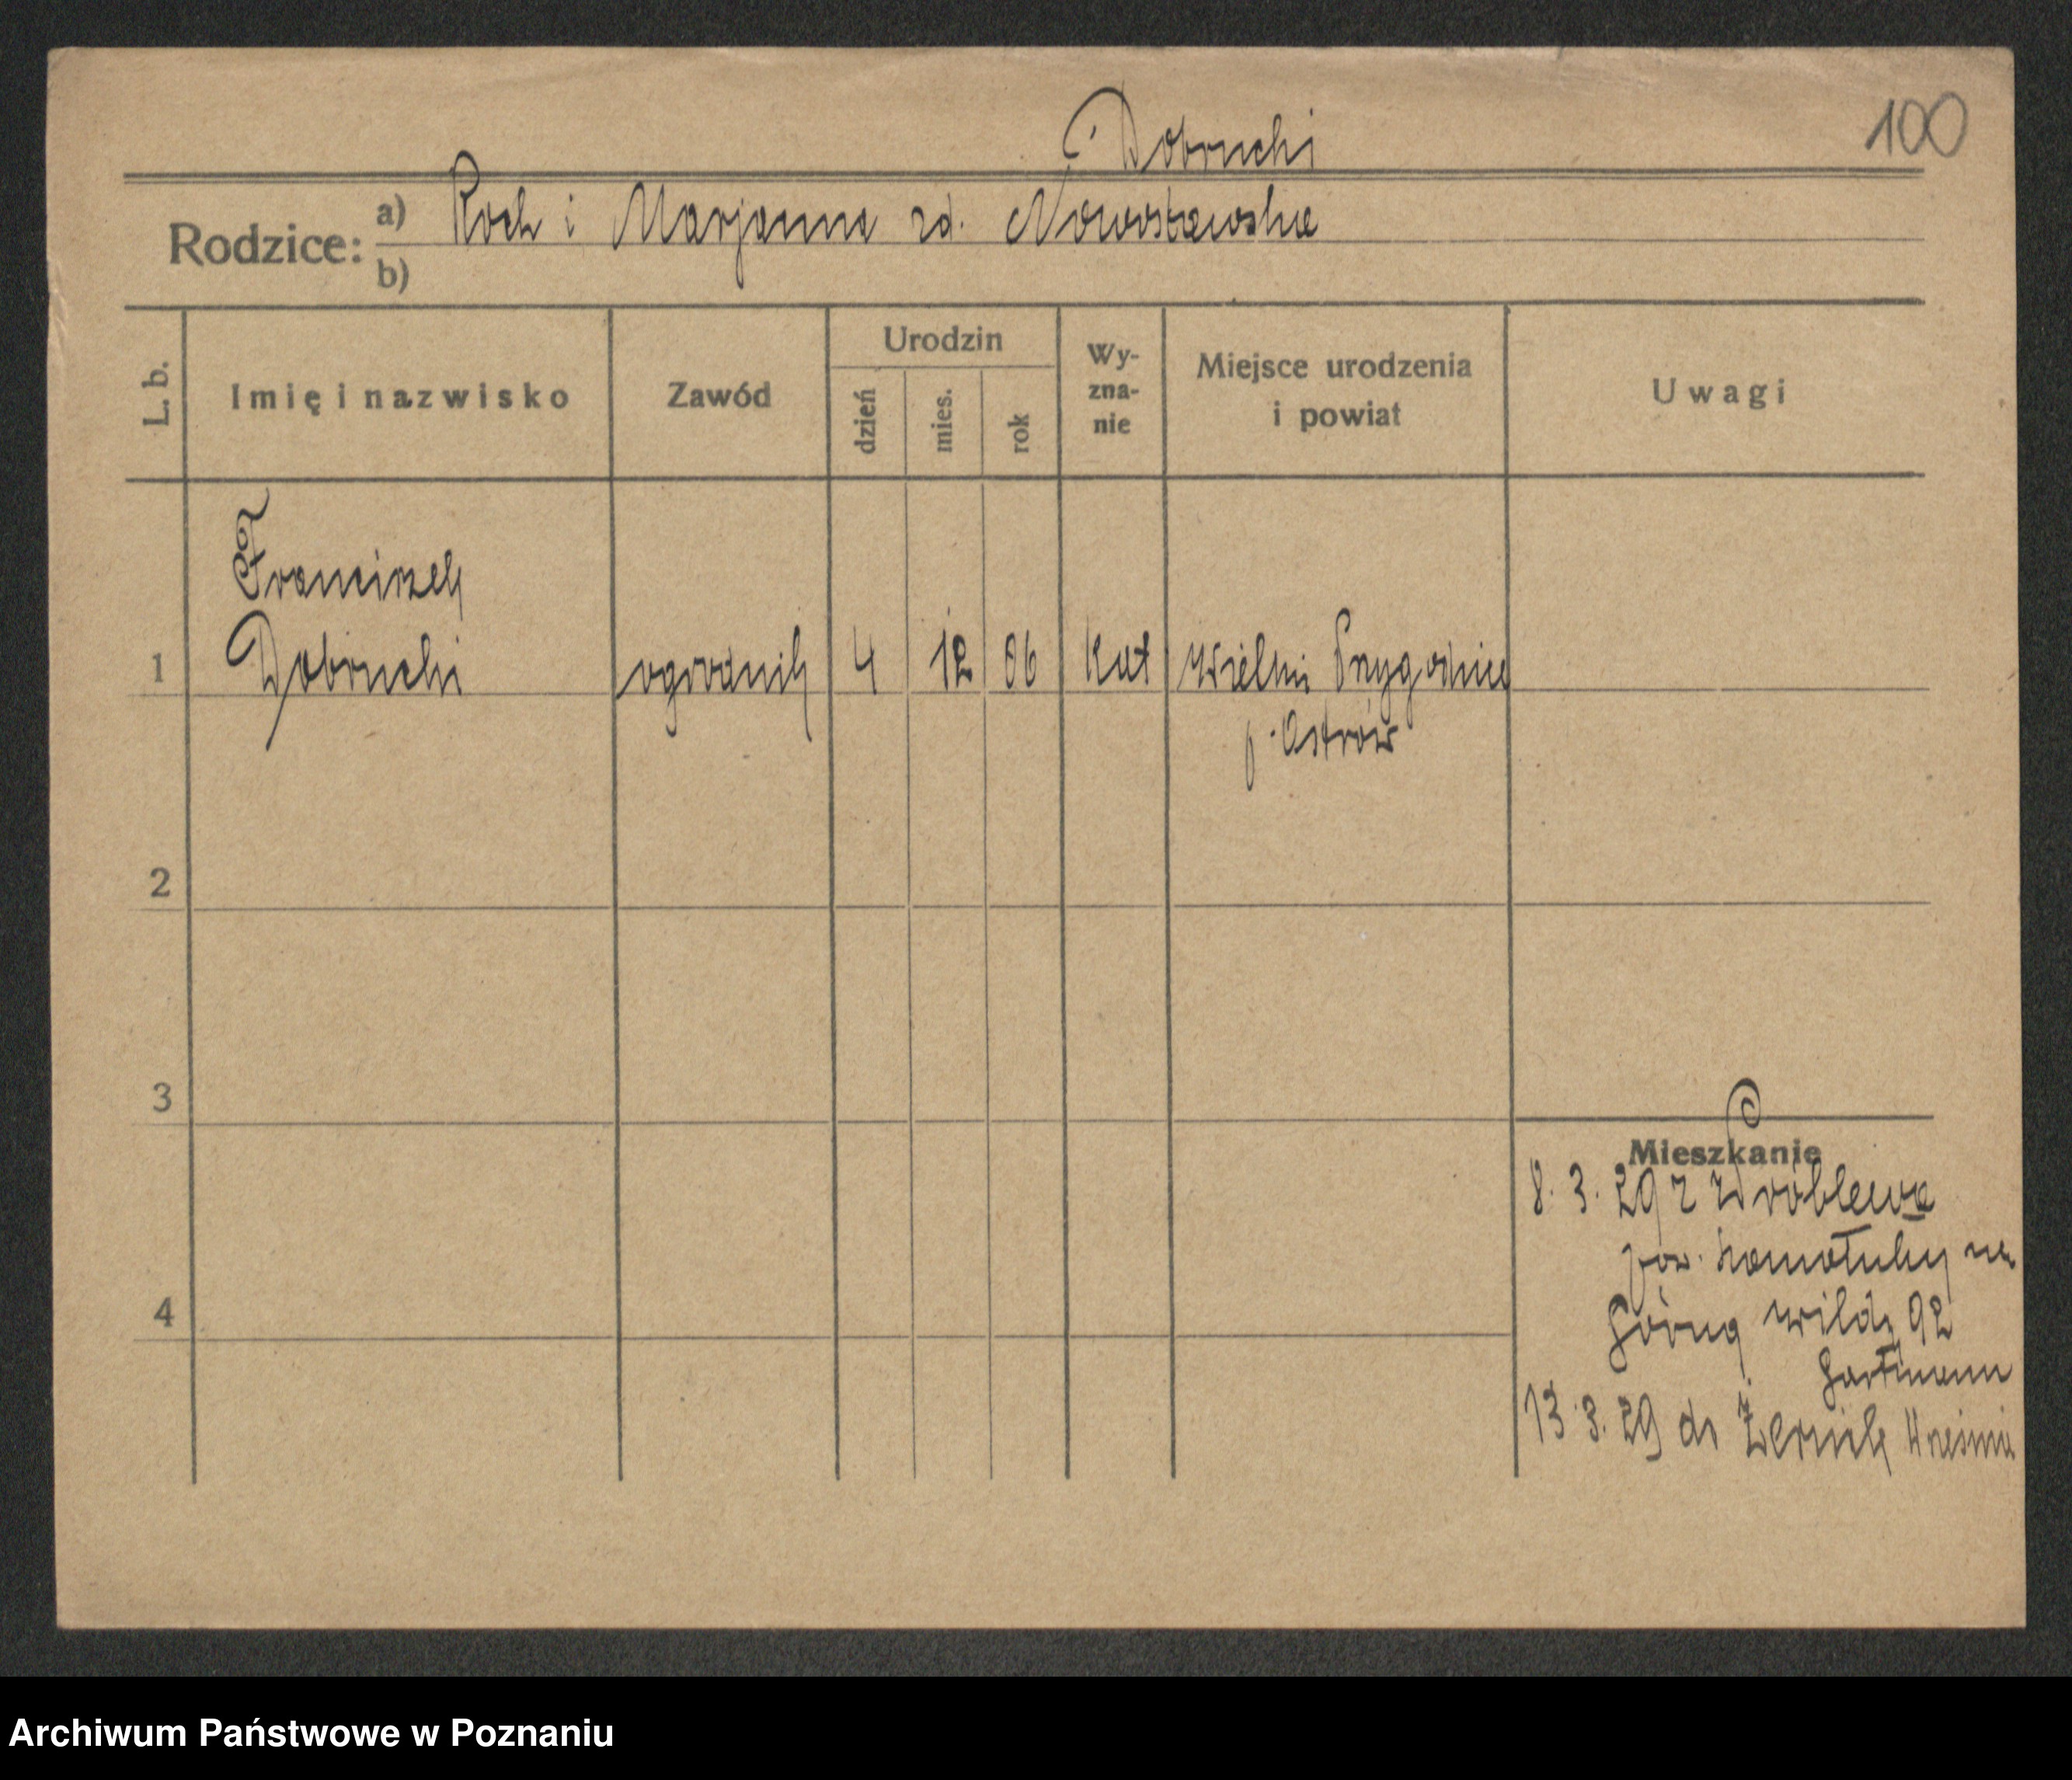 Dobrucki
100
Rodzice: a) Roch i Marjanna zd. Nowostawska
b)
L. b.
Imię i nazwisko
Zawód
Urodzin
dzień
mies.
rok
Wy-
zna-
nie
Miejsce urodzenia
i powiat
Uwagi
Franciszek
1 Dobrucki ogrodnik 4 12 06 Kat Wielki Przygodnice
p. Ostrów
2
3
4
Mieszkanie
8. 3. 29 z Wróblewa
pow. Szamotuły na
Górną Wildę 92
Hartmann
13. 3. 29 do Żernik Wrześni
Archiwum Państwowe w Poznaniu